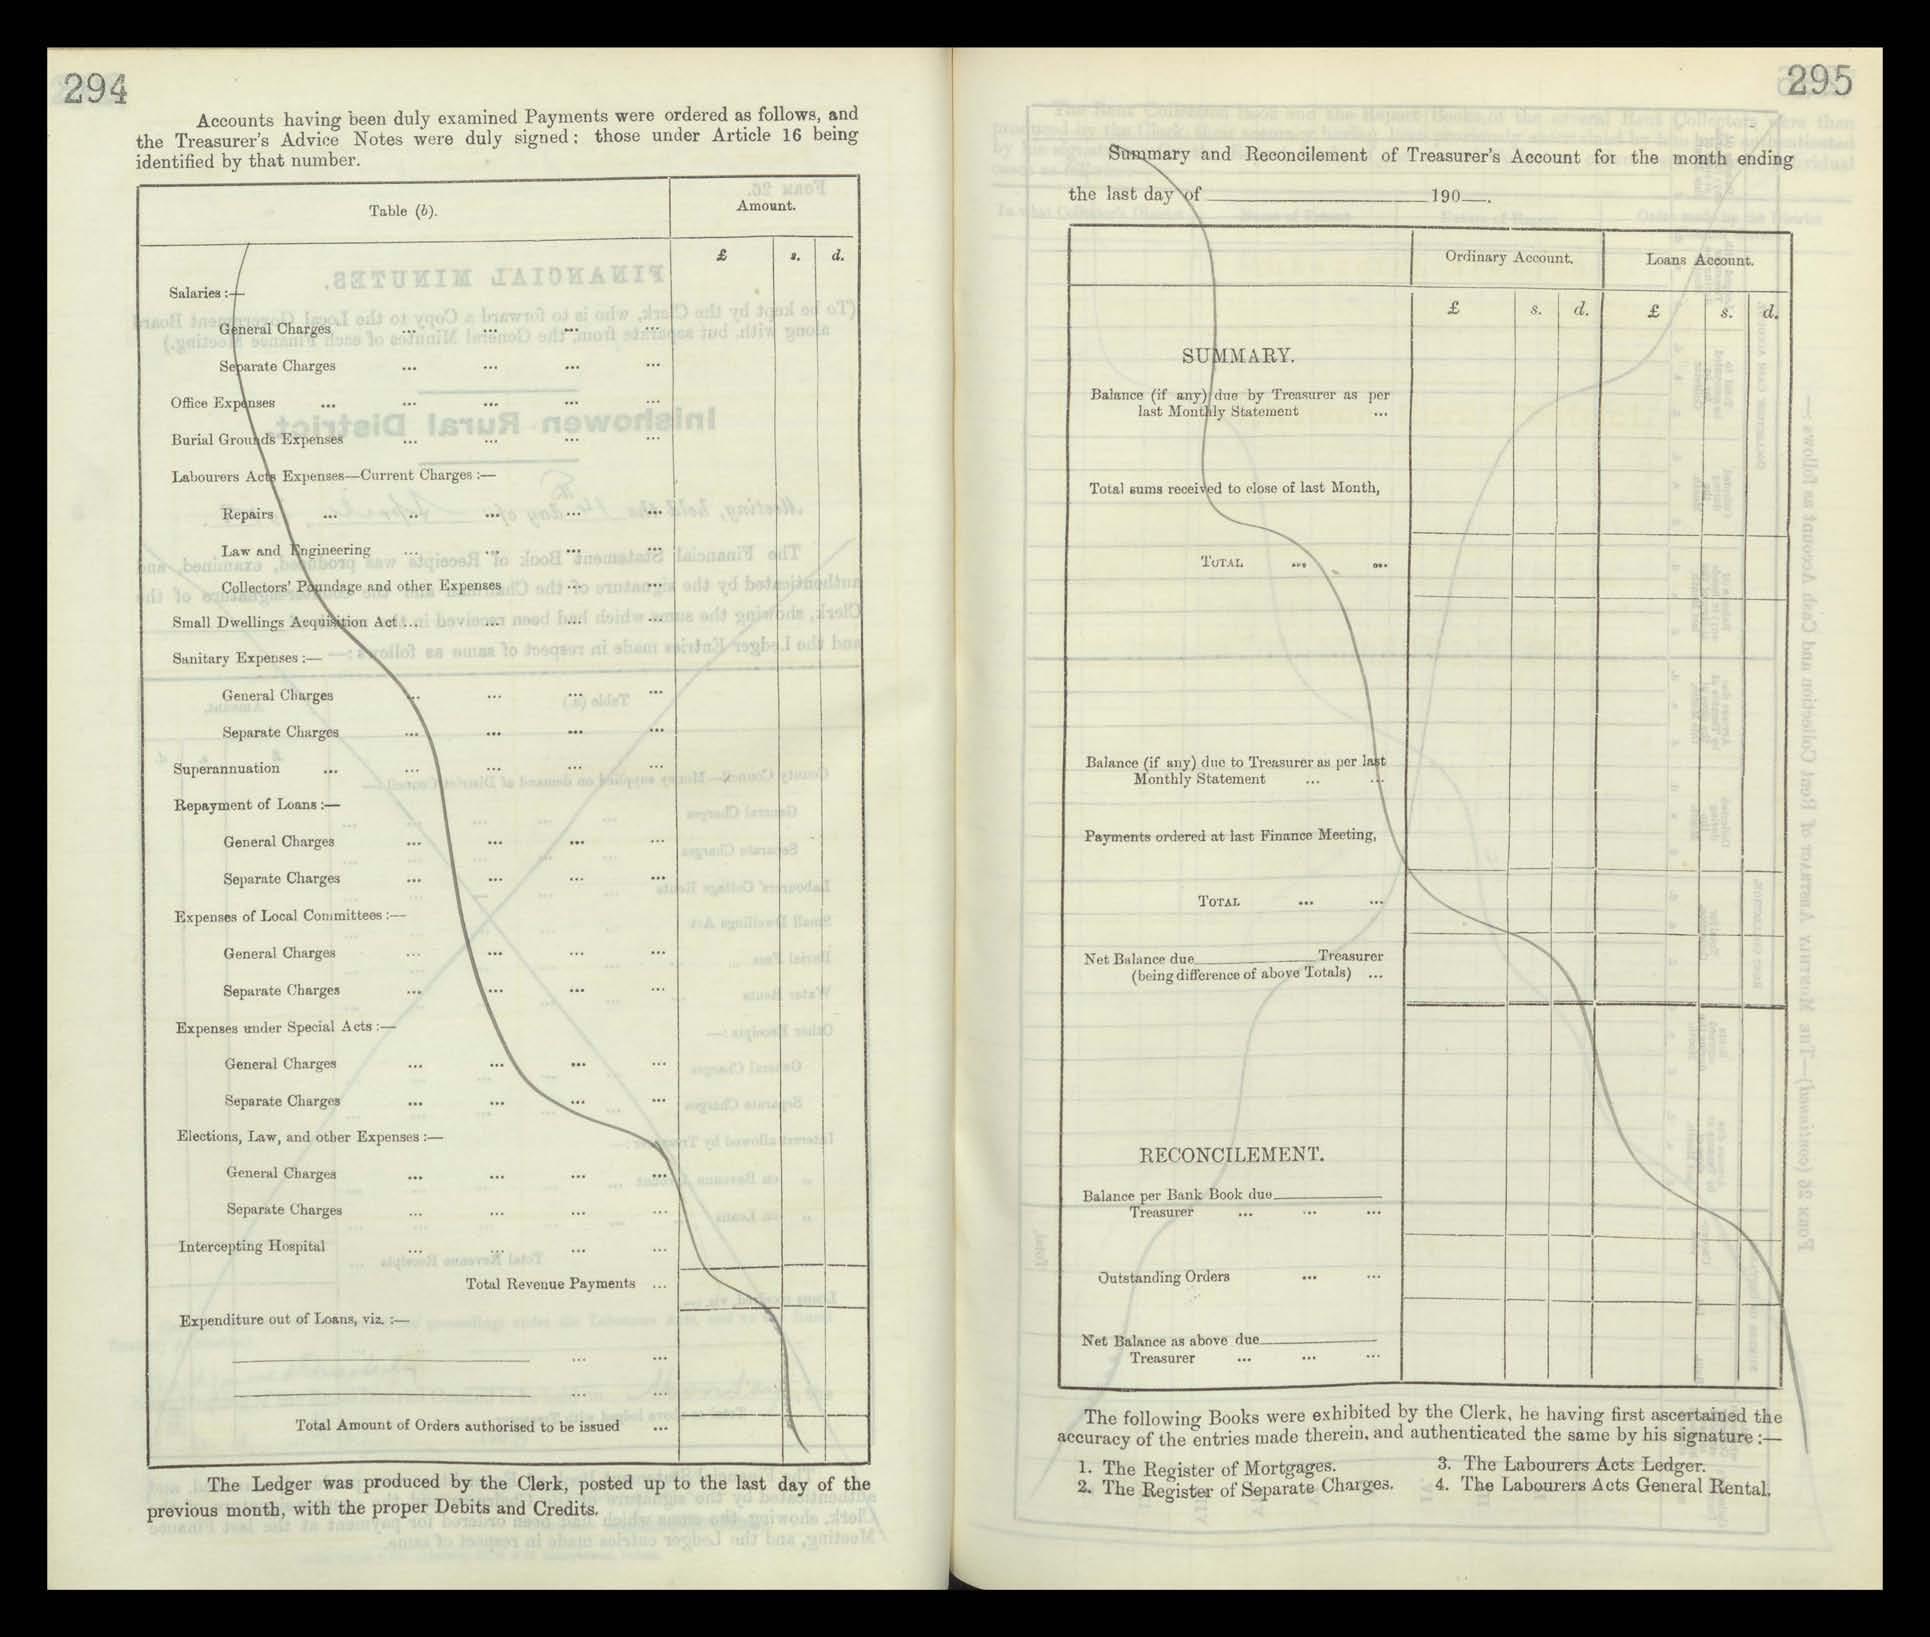 294
Accounts having been duly examined Payments were ordered as follows, and
the Treasurer's Advice Notes were duly signed; those under Article 16 being
identified by that number.
Table (b).
Amount.
£ s. d.
Salaries :—
General Charges ... ... ... ...
Separate Charges ... ... ... ...
Office Expenses ... ... ... ... ...
Burial Grounds Expenses ... ... ... ...
Labourers Acts Expenses—Current Charges :—
Repairs ... ... ... ... ...
Law and Engineering ... ... ... ...
Collectors' Poundage and other Expenses ... ...
Small Dwellings Acquisition Act ... ... ... ...
Sanitary Expenses :—
General Charges ... ... ... ...
Separate Charges ... ... ... ...
Superannuation ... ... ... ... ...
Repayment of Loans :—
General Charges ... ... ... ...
Separate Charges ... ... ... ...
Expenses of Local Committees :—
General Charges ... ... ... ...
Separate Charges ... ... ... ...
Expenses under Special Acts :—
General Charges ... ... ... ...
Separate Charges ... ... ... ...
Elections, Law, and other Expenses :—
General Charges ... ... ... ...
Separate Charges ... ... ... ...
Intercepting Hospital ... ... ... ...
Total Revenue Payments ...
Expenditure out of Loans, viz. :—
... ...
... ...
Total Amount of Orders authorised to be issued ...
The Ledger was produced by the Clerk, posted up to the last day of the
previous month, with the proper Debits and Credits.
295
Summary and Reconcilement of Treasurer's Account for the month ending
the last day of 190 .
Ordinary Account. Loans Account.
£ s. d. £ s. d.
SUMMARY.
Balance (if any) due by Treasurer as per
last Monthly Statement ...
Total sums received to close of last Month,
TOTAL ... ...
Balance (if any) due to Treasurer as per last
Monthly Statement ... ...
Payments ordered at last Finance Meeting,
TOTAL ... ...
Net Balance due Treasurer
(being difference of above Totals) ...
RECONCILEMENT.
Balance per Bank Book due
Treasurer ... ... ...
Outstanding Orders ... ...
Net Balance as above due
Treasurer ... ... ...
The following Books were exhibited by the Clerk, he having first ascertained the
accuracy of the entries made therein, and authenticated the same by his signature :—
1. The Register of Mortgages.
2. The Register of Separate Charges.
3. The Labourers Acts Ledger.
4. The Labourers Acts General Rental.